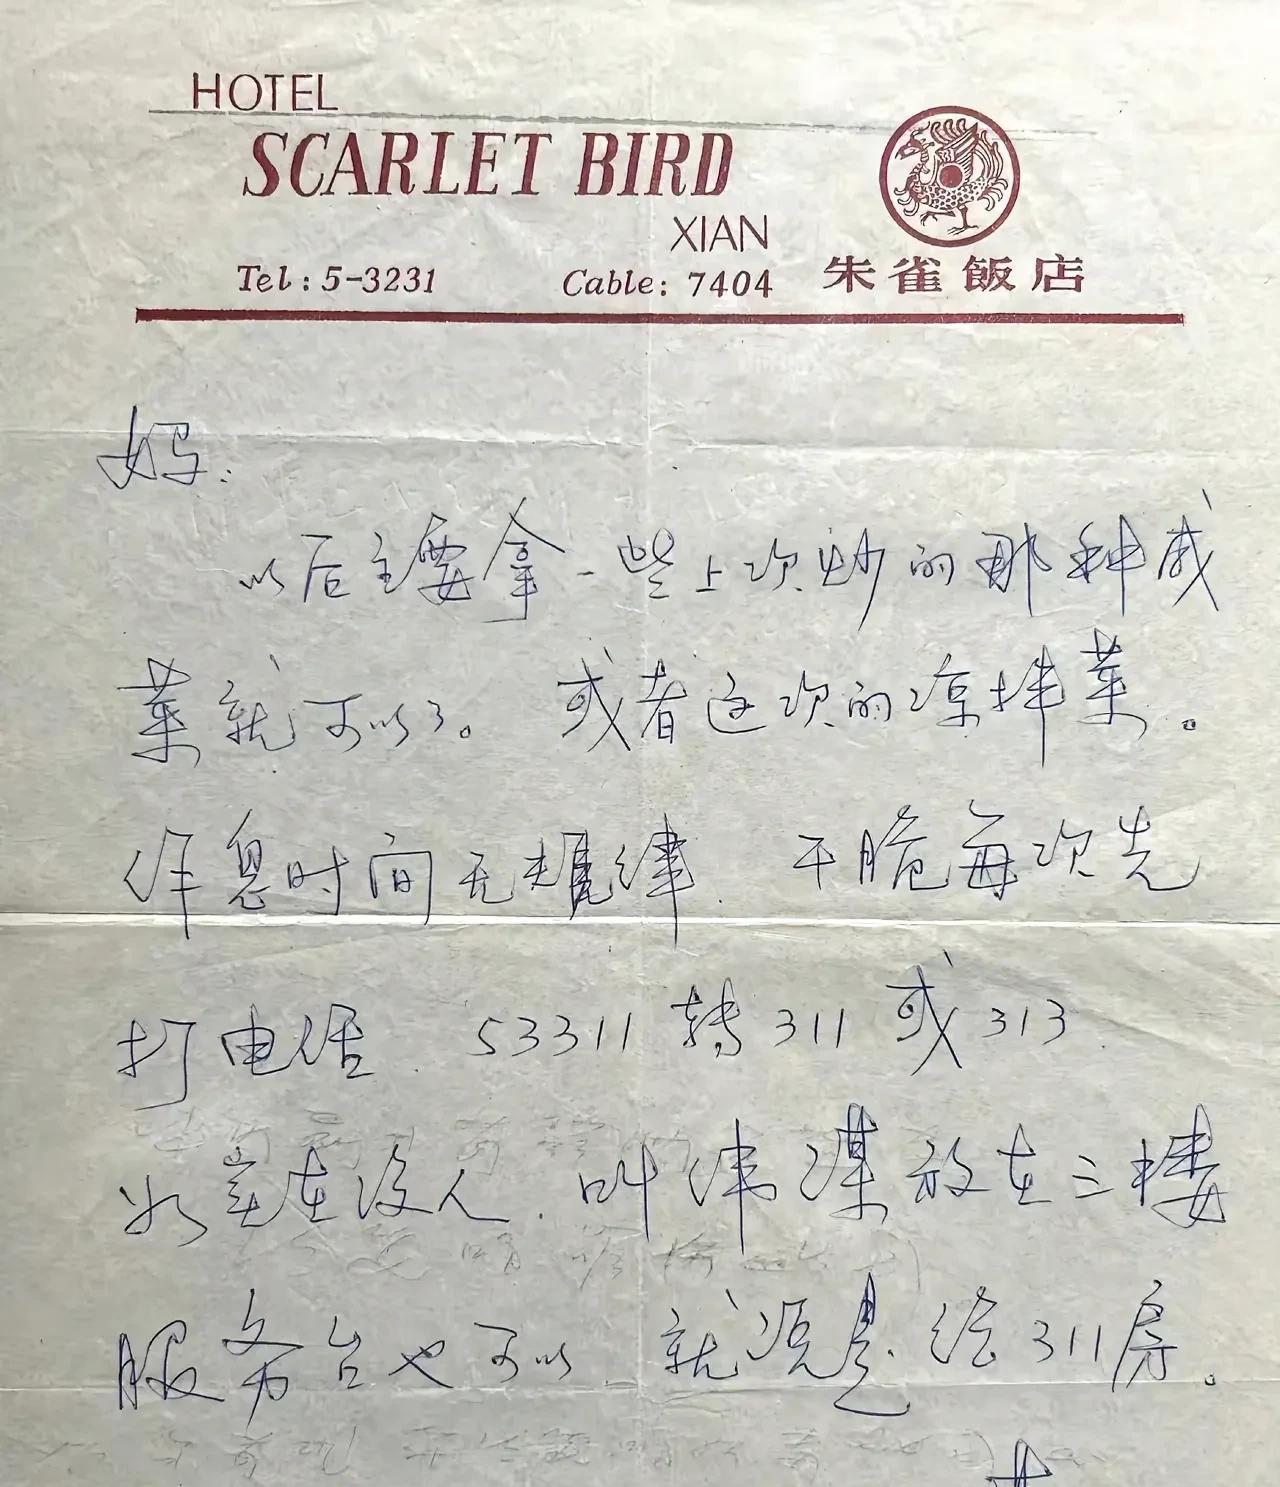 HOTEL
SCARLET BIRD
XIAN
Tel: 5-3231 Cable: 7404 朱雀飯店
妈:
以后主要拿一些上次炒的那种咸
菜就可以了。 或者这次的凉拌菜。
作息时间无规律. 干脆每次先
打电话. 53311 转 311 或 313
如实在没人. 叫伟谋放在三楼
服务台也可以 就说是给311房。